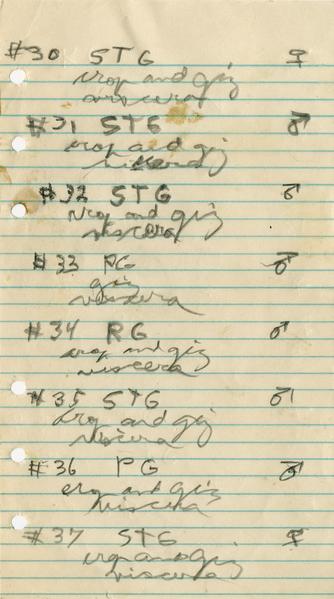 #30 STG ♀
crop and giz
viscera
#31 STG ♂
crop and giz
viscera
#32 STG ♂
crop and giz
viscera
#33 PG ♂
giz
viscera
#34 RG ♂
crop and giz
viscera
#35 STG ♂
crop and giz
viscera
#36 PG ♂
crop and giz
viscera
#37 STG ♀
crop and giz
viscera